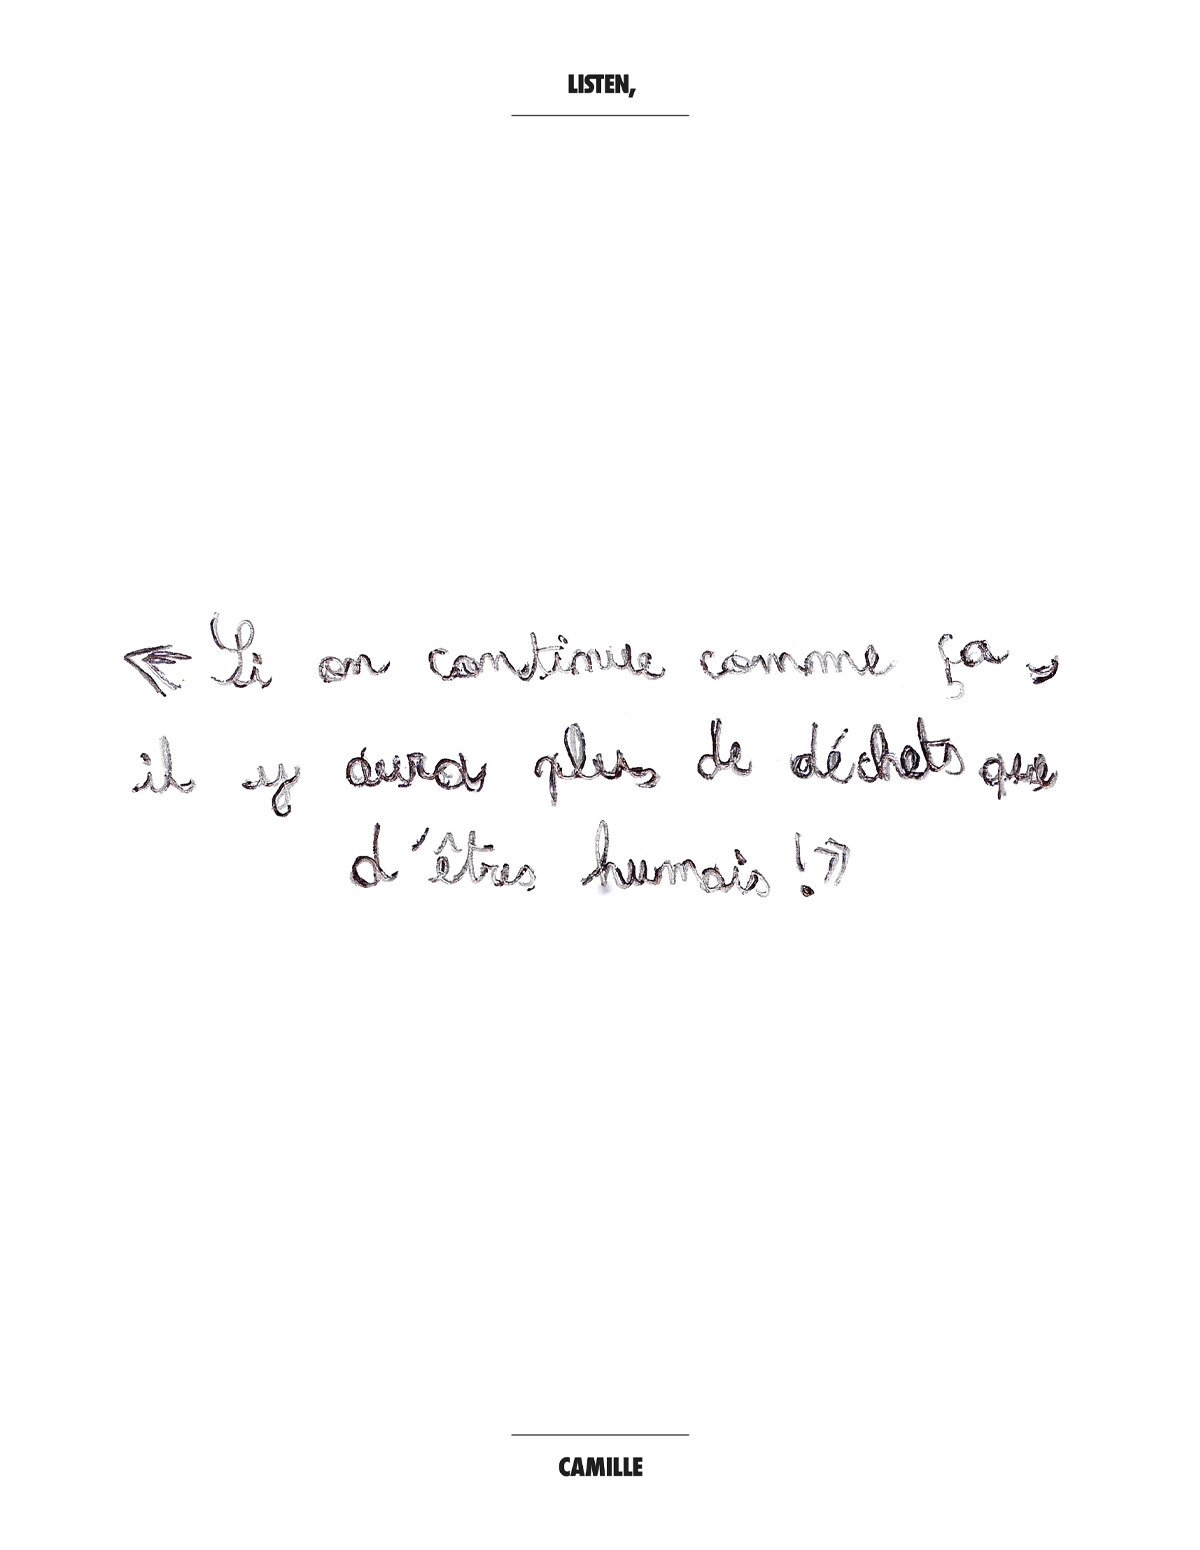 LISTEN,
« Si on continue comme ça,
il y aura plus de déchets que
d'êtres humais ! »
CAMILLE